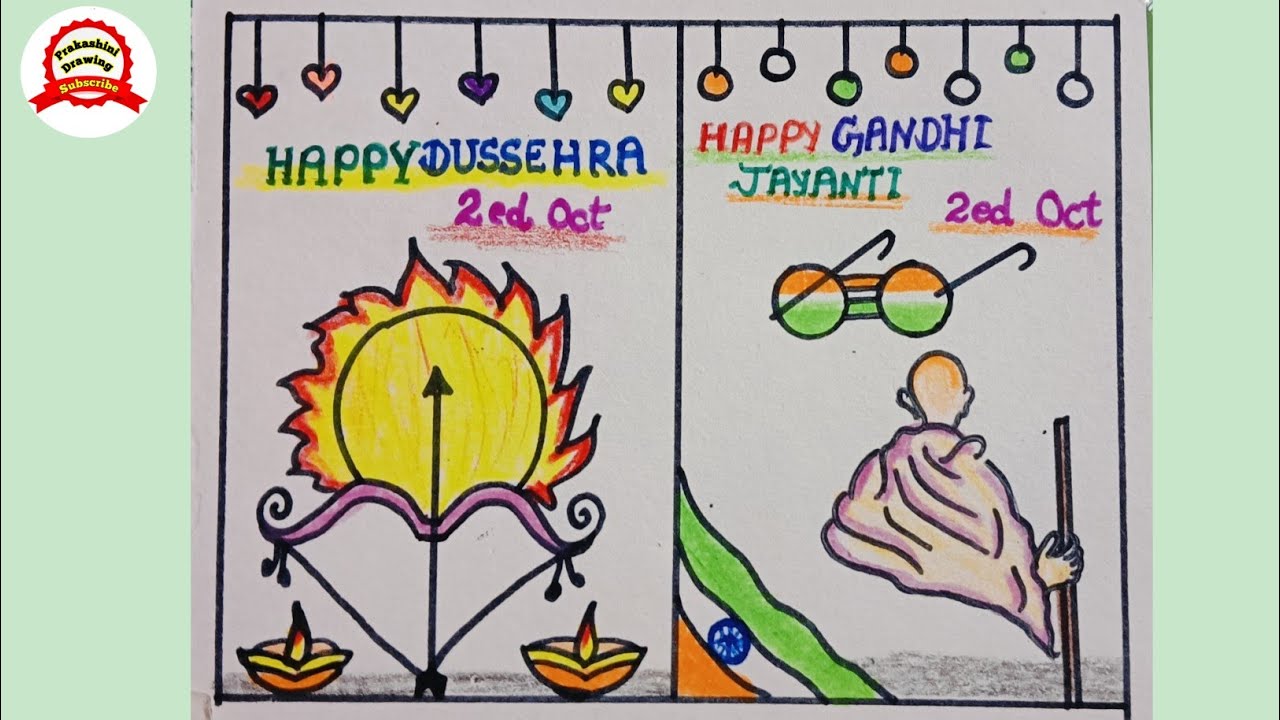 Prakashini
Drawing
Subscribe
HAPPY DUSSEHRA
2ed Oct
HAPPY GANDHI
JAYANTI
2ed Oct